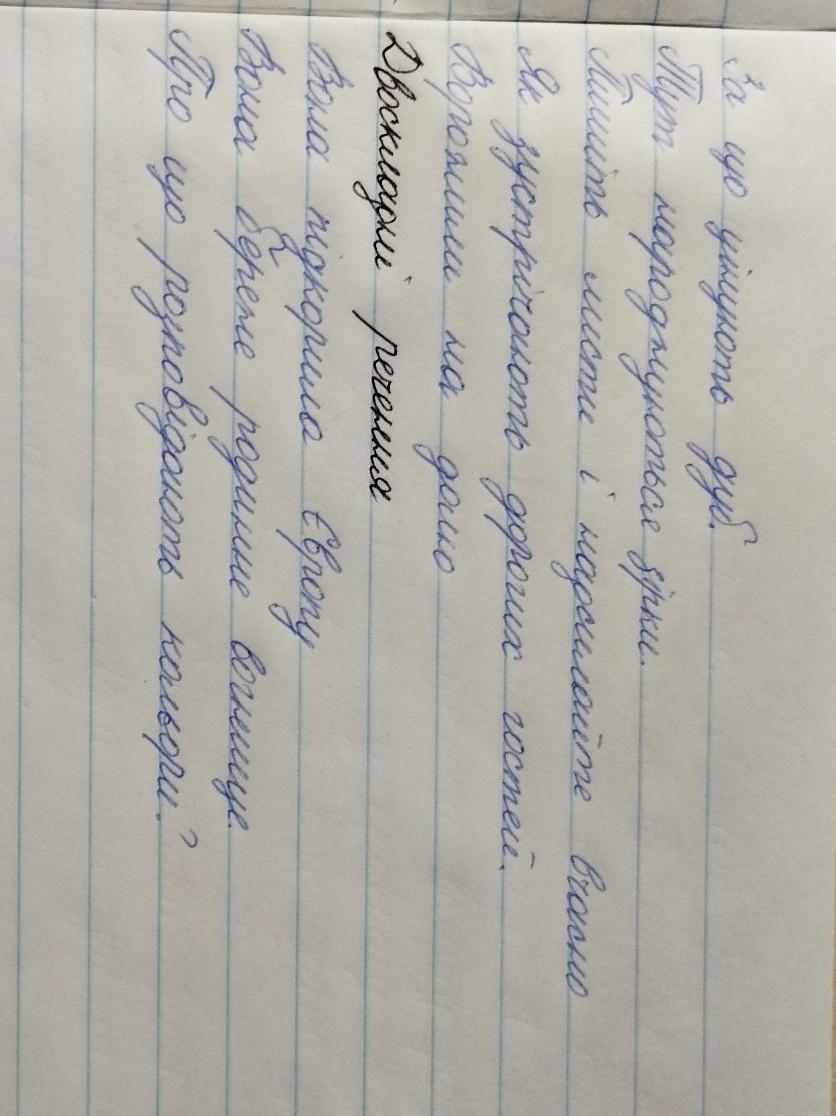 За що цінують дуб.
Тут народжуються зірки.
Пишіть листи і надсилайте вчасно
Як зустрічають дорогих гостей.
Ворожили на долю
Двоскладні речення
Вона підкорила Європу
Вона береже родинне вогнище.
Про що розповідають кольори?